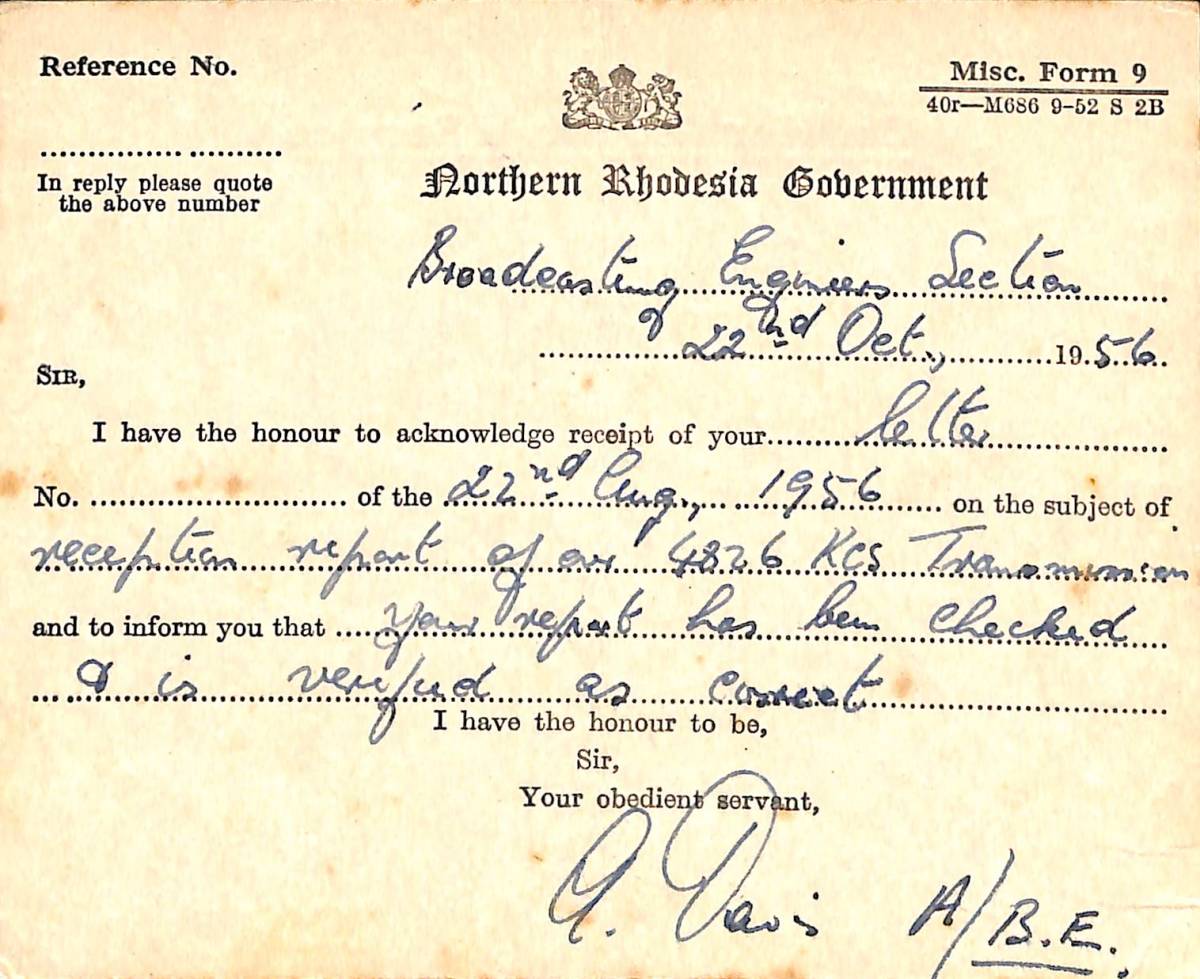 Reference No.
Misc. Form 9
40r—M686 9-52 S 2B
In reply please quote
the above number
Northern Rhodesia Government
Broadcasting Engineers Section
22nd Oct., 1956
SIR,
I have the honour to acknowledge receipt of your letter
No. of the 22nd Aug., 1956 on the subject of
reception report of our 4826 KCS Transmission
and to inform you that your report has been checked
& is verified as correct
I have the honour to be,
Sir,
Your obedient servant,
Davis A/B.E.